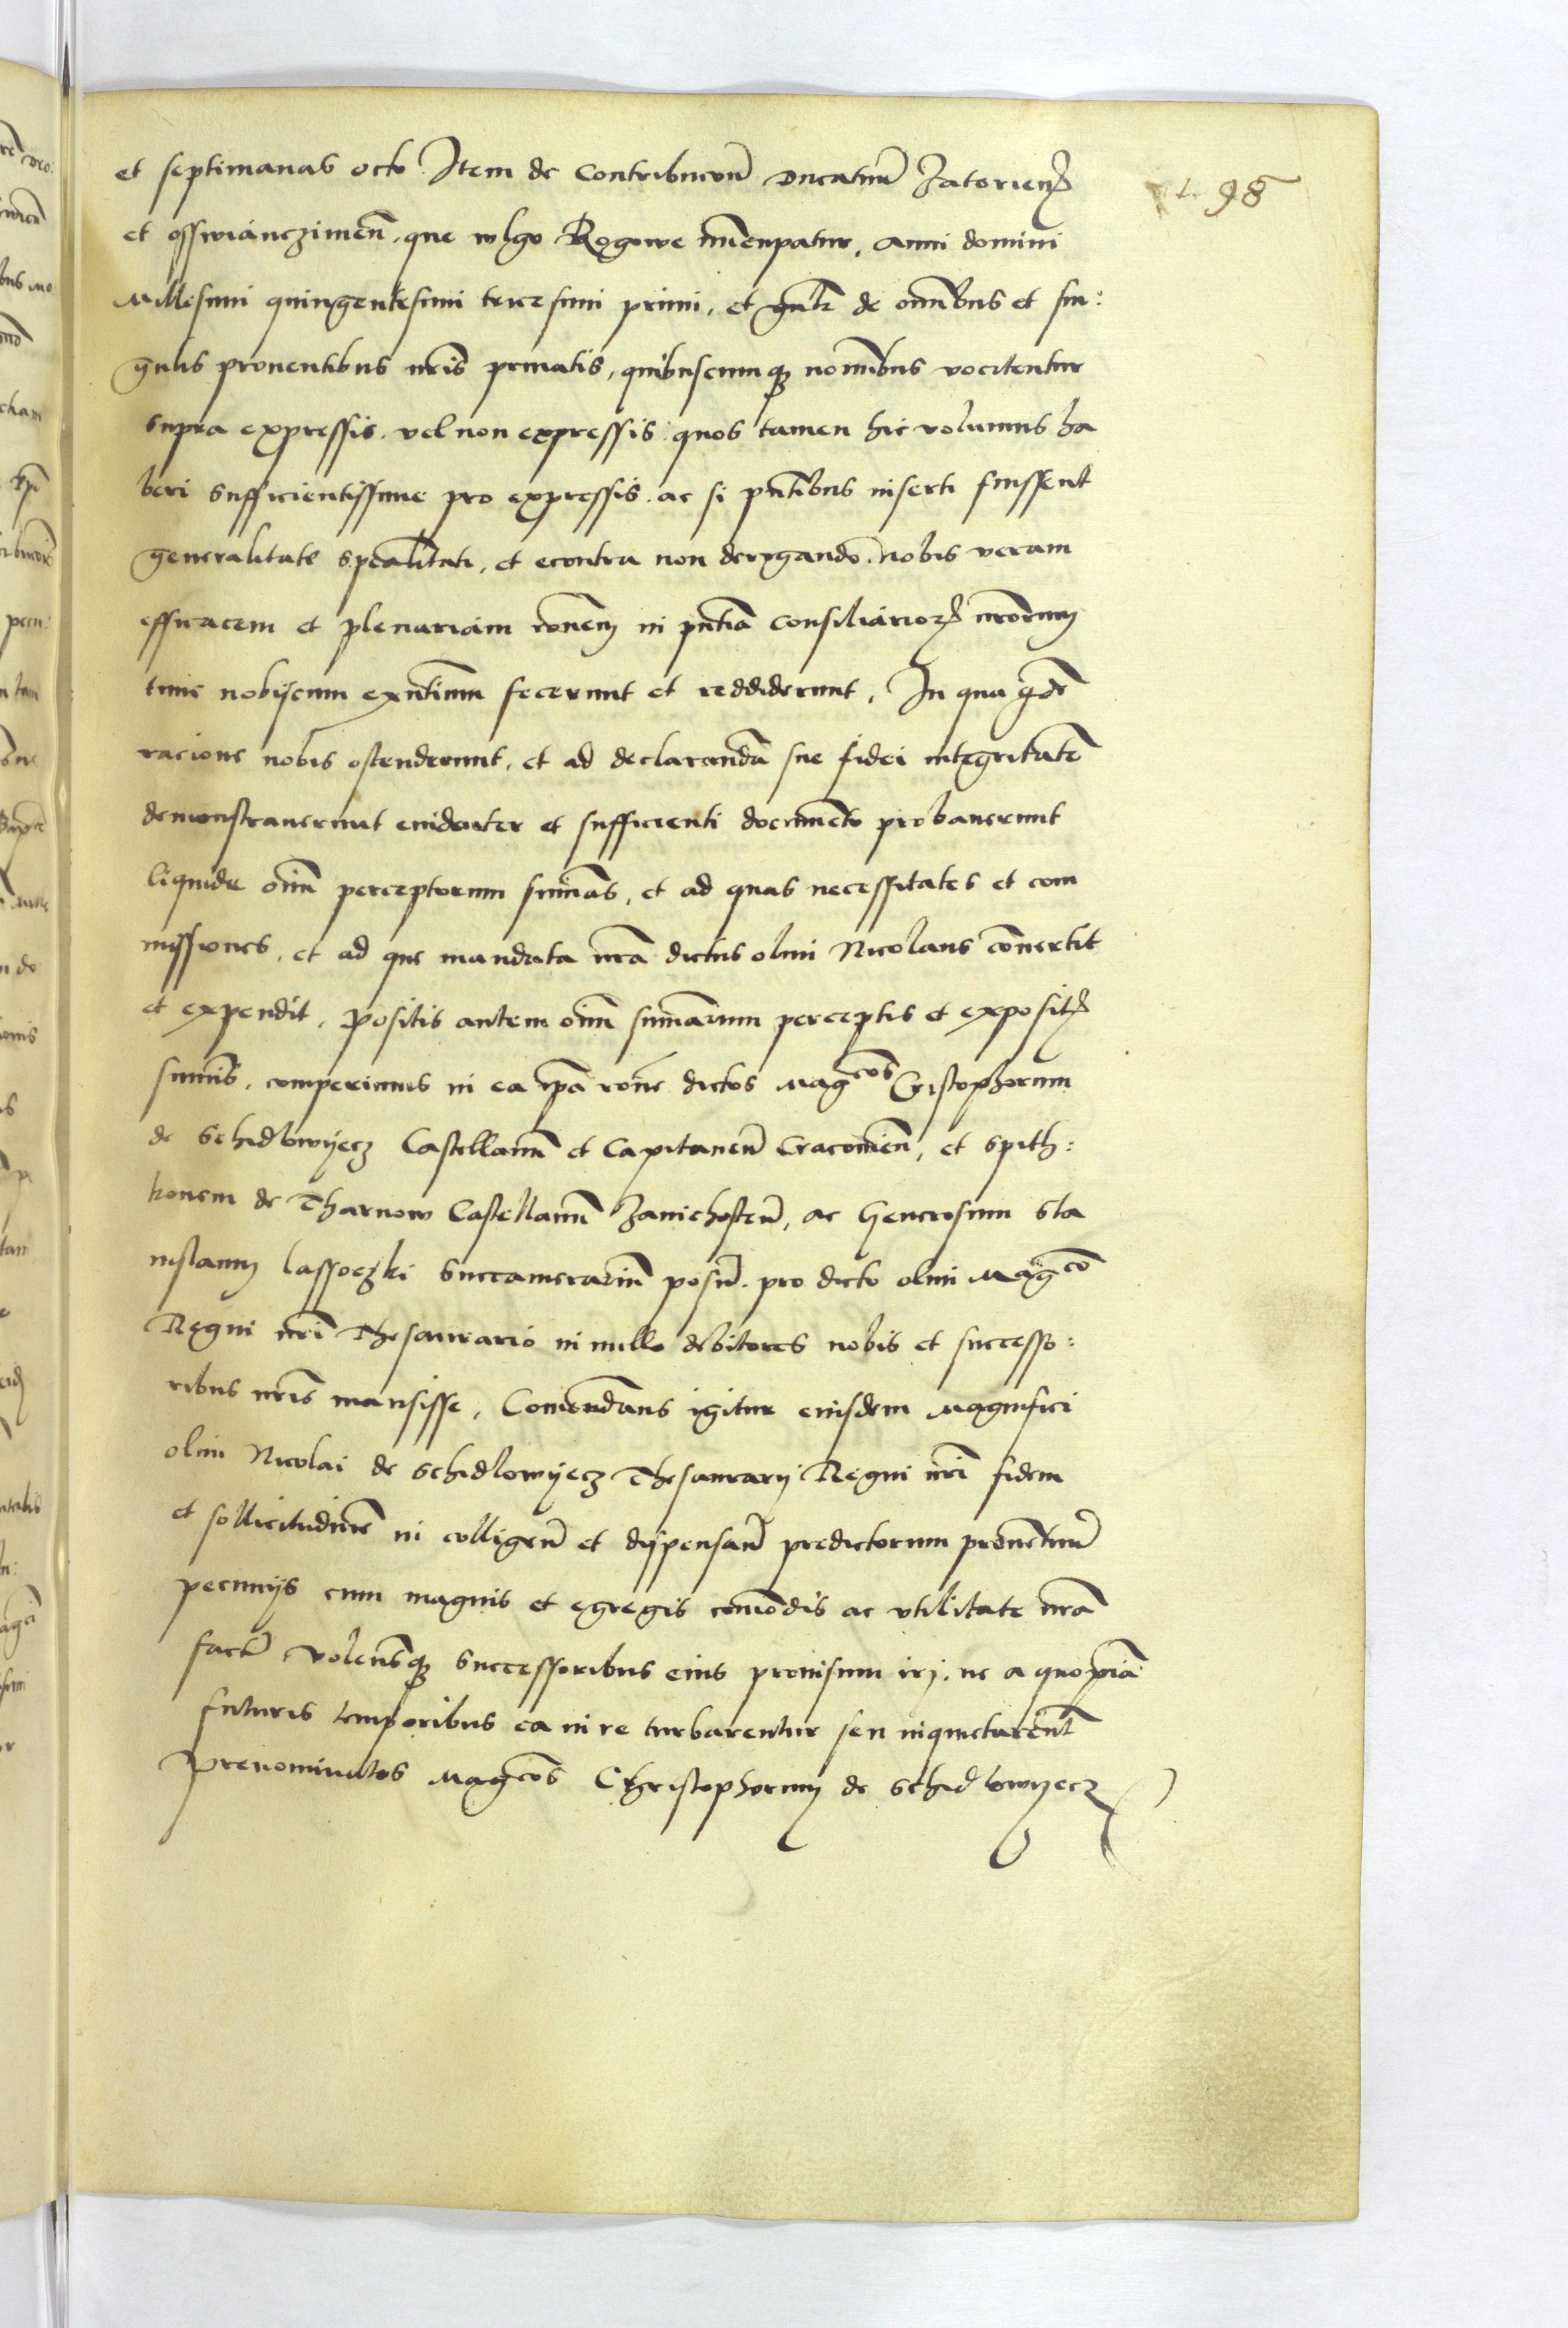 98
et septimanas octo Item de Contribucoñ Ducatuũ Zatorieñ
et osswiánczimeñ. que wlgo Rogowe nũcupatur, anni domini
Millesimi quingentesimi tricesimi primi, et gñlr de om̃ibus et sin:
gulis prouentibus nr̃is priuatis, quibuscumqꝫ nom̃ibus vocitentur
supra expressis. vel non expressis. quos tamen hic volumus ha
beri sufficientissime pro expressis. ac si pñtibus inserti fuissent
generalitate specalitati, et econtra non derogando. nobis veram
efficacem et plenariam rõnem in pñtia consiliarioꝝ nr̃orum
tunc nobiscum exñtium fecerunt et reddiderunt. In qua qͥdẽ
racione nobis ostenderunt, et ad declarandã sue fidei integritatẽ
demonstrauerunt euidenter et sufficienti documẽto probauerunt
liquide om̃ perceptorum sum̃as, et ad quas necessitates et com
missiones, et ad que mandata nr̃a dictus olim Nicolaus cõuertit
et expendit. Positis autem om̃ sum̃arum perceptis et exposit
sum̃is, comperimus in ea ip̃a rõne dictos Magcos Cristophorum
de Schidlowyecz Castellanũ et Capitaneũ Cracouieñ, et Spith:
konem de Tharnow Castellanũ Zawichosteñ, ac Generosum Sta
nislaum lassoczki Succamerariũ posnñ. pro dicto olim Magco
Regni nr̃i Thesaurario in nullo debitores nobis et successo:
ribus nr̃is mansisse, Comẽndãns igitur eiusdem Magnifici
olim Nicolai de Schidlowyecz Thesaurarij Regni nr̃i fidem
et sollicitudinẽ in colligeñ et dispensañ predictorum prouẽtuũ
pecunijs cum magnis et egregis comõdis ac vtilitate nr̃a
fact̃, volensqꝫ successoribus eius prouisum irj. ne a quopiã
futuris temporibus ea in re turbarentur seu inquietarent̃
Prenominatos Magcos Christophorum de Schidlowyecz